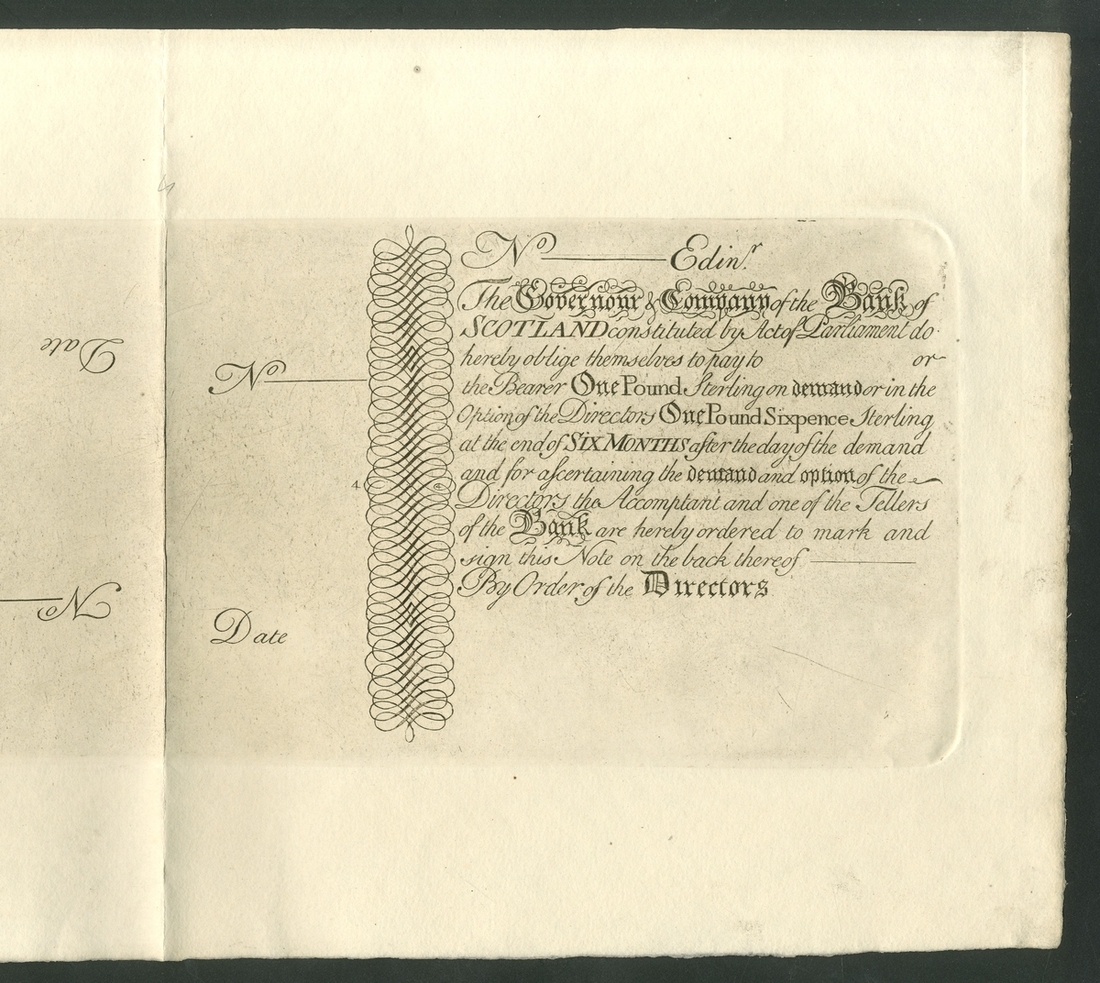 No Edinr.
The Governour & Company of the Bank of
SCOTLAND constituted by Act of Parliament do
hereby oblige themselves to pay to or
the Bearer One Pound Sterling on demand or in the
Option of the Directors One Pound Sixpence Sterling
at the end of SIX MONTHS after the day of the demand
and for ascertaining the demand and option of the
Directors the Accomptant and one of the Tellers
of the Bank are hereby ordered to mark and
sign this Note on the back thereof
By Order of the Directors
No
4
Date
Date
No